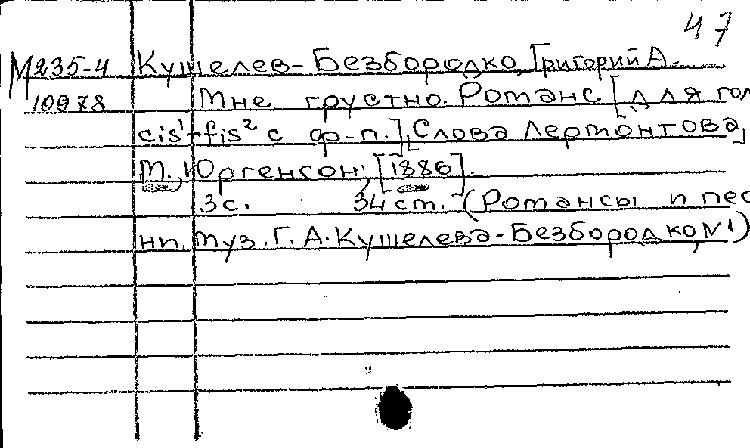 47
М235-4 Кушелев-Безбородко, Григорий А.
10978 Мне грустно. Романс. [Для гол
cis¹-fis² с ф-п.], [Слова Лермонтова]
М., Юргенсон, [1886].
3с. 34см. (Романсы и пес
ни муз. Г. А. Кушелева-Безбородко, №1)